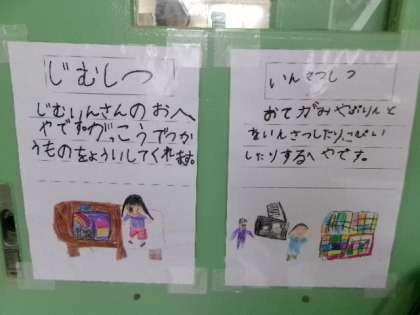 じむしつ
じむいんさんのおへ
やです。がっこうでつか
うものをよういしてくれ
ます。
いんさつしつ
おてがみやぷりんと
をいんさつしたりこぴい
したりするへやです。